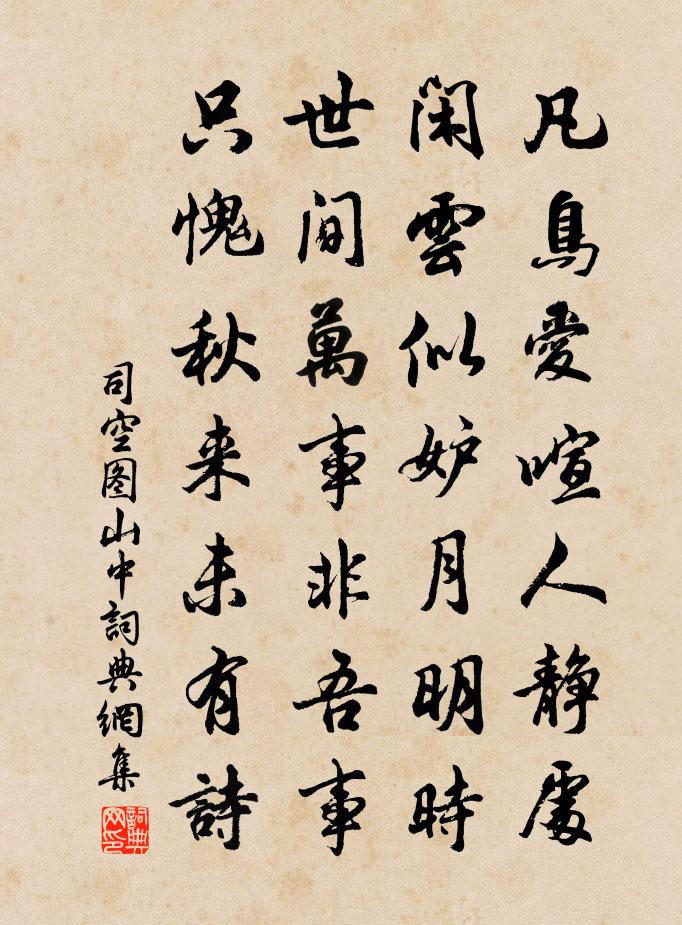 凡鳥愛喧人静處
閑雲似妒月明時
世間萬事非吾事
只愧秋来未有詩
司空图山中詞典網集
詞典网印